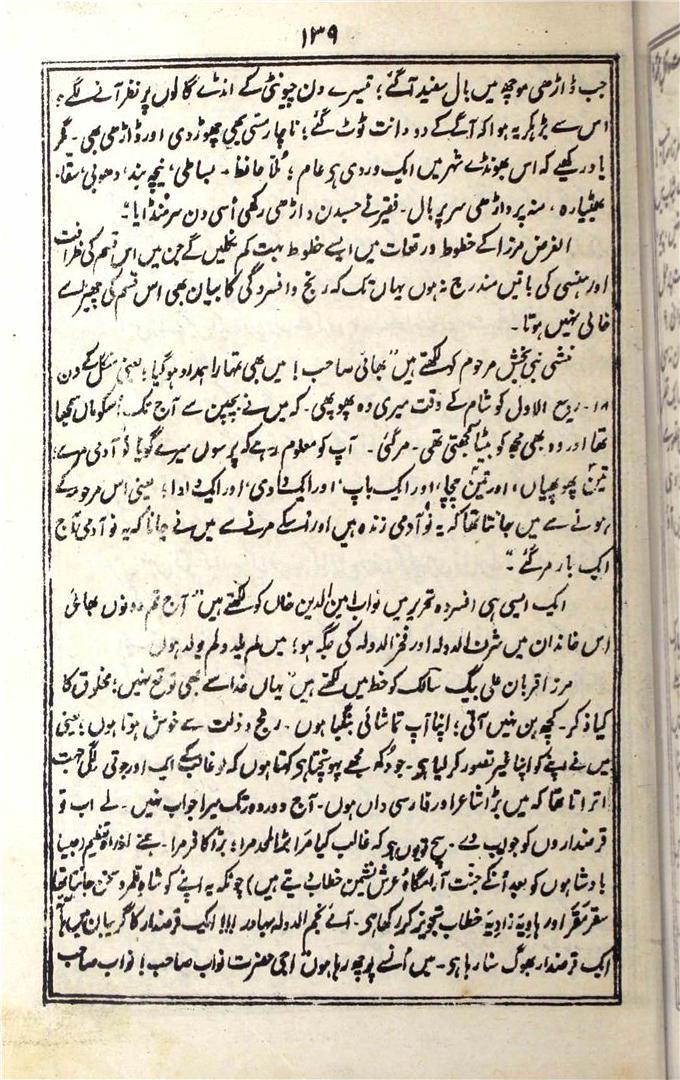 ۱۳۹
جب ڈاڑھی موچھ میں بال سفید آگئے؛ تیسرے دن چیونٹی کے انڈے گالوں پر نظر آنے لگے؛
اس سے بڑہکر یہ ہوا کہ آگے کے دو دانت ٹوٹ گئے؛ ناچار مسّی بھی چھوڑ دی اور ڈاڑھی بھی - مگر
یاد رکھیے کہ اس بھونڈے شہر میں ایک وردی ہی عام؛ مُلّا حافظ - بساطی، نیچہ بند، دھوبی، سقا،
بھٹیارہ، منہ پر ڈاڑھی سر پر بال - فقیر نے جسدن ڈاڑھی رکھی اُسی دن سر منڈایا"-
الغرض مرزا کے خطوط و رقعات میں ایسے خطوط بہت کم نکلیں گے جن میں اس قسم کی ظرافت
اور ہنسی کی باتیں مندرج نہوں یہاں تک کہ رنج و افسردگی کا بیان بھی اس قسم کی چھیڑ سے
خالی نہیں ہوتا -
منشی نبی بخش مرحوم کو لکھتے ہیں "بھائی صاحب! میں بھی تمہارا ہمدرد ہوگیا؛ یعنی منگل کے دن
۱۸- ربیع الاول کو شام کے وقت میری وہ پھوپھی - کہ میں نے بچپن سے آج تک اُسکو ماں سمجھا
تھا اور وہ بھی مجھکو بیٹا سمجھتی تھی - مرگئی - آپ کو معلوم رہے کہ پرسوں میرے گویا نو آدمی مرے؛
تین پھوپھیاں، اور تین چچا، اور ایک باپ، اور ایک دادی، اور ایک دادا؛ یعنی اس مرحومہ کے
ہونے سے میں جانتا تھا کہ یہ نو آدمی زندہ ہیں اور اُسکے مرنے سے میں نے جانا کہ یہ نو آدمی آج
ایک بار مرگئے"-
ایک ایسی ہی افسردہ تحریر میں نواب امین الدین خاں کو لکھتے ہیں "آج تم دونوں بھائی
اس خاندان میں شرف الدولہ اور فخر الدولہ کی جگہ ہو؛ میں لم یلد و لم یولد ہوں
مرزا قربان علی بیگ سالک کو خط میں لکھتے ہیں "یہاں خدا سے بھی توقع نہیں؛ مخلوق کا
کیا ذکر - کچھ بن نہیں آتی؛ اپنا آپ تماشائی بنگیا ہوں - رنج و ذلت سے خوش ہوتا ہوں؛ یعنی
میں نے اپنے کو اپنا غیر تصور کرلیا ہی - جو دُکھ مجھے پہونچتا ہی کہتا ہوں کہ لو غالب کے ایک اور جوتی لگی؛ بہت
اتراتا تھا کہ میں بڑا شاعر اور فارسی داں ہوں - آج دور دور تک میرا جواب نہیں - لے اب تو
قرضداروں کو جواب دے - سچ تو یوں ہی کہ غالب کیا مرا بڑا ملحد مرا؛ بڑا کافر مرا - ہمنے ازراہ تعظیم (جیسا
بادشاہوں کو بعد اُنکے جنت آرامگاہ و عرش نشیمن خطاب دیتے ہیں) چونکہ یہ اپنے کو شاہ قلمرو سخن جانتا تھا
سقر مقر اور ہاویہ زاویہ خطاب تجویز کر رکھا ہی - آئیے نجم الدولہ بہادر !!! ایک قرضدار کا گریبان میں ہاتھ
ایک قرضدار بھوگ سنا رہا ہی - میں اُنسے پوچھ رہا ہوں "اجی حضرت نواب صاحب! نواب صاحب